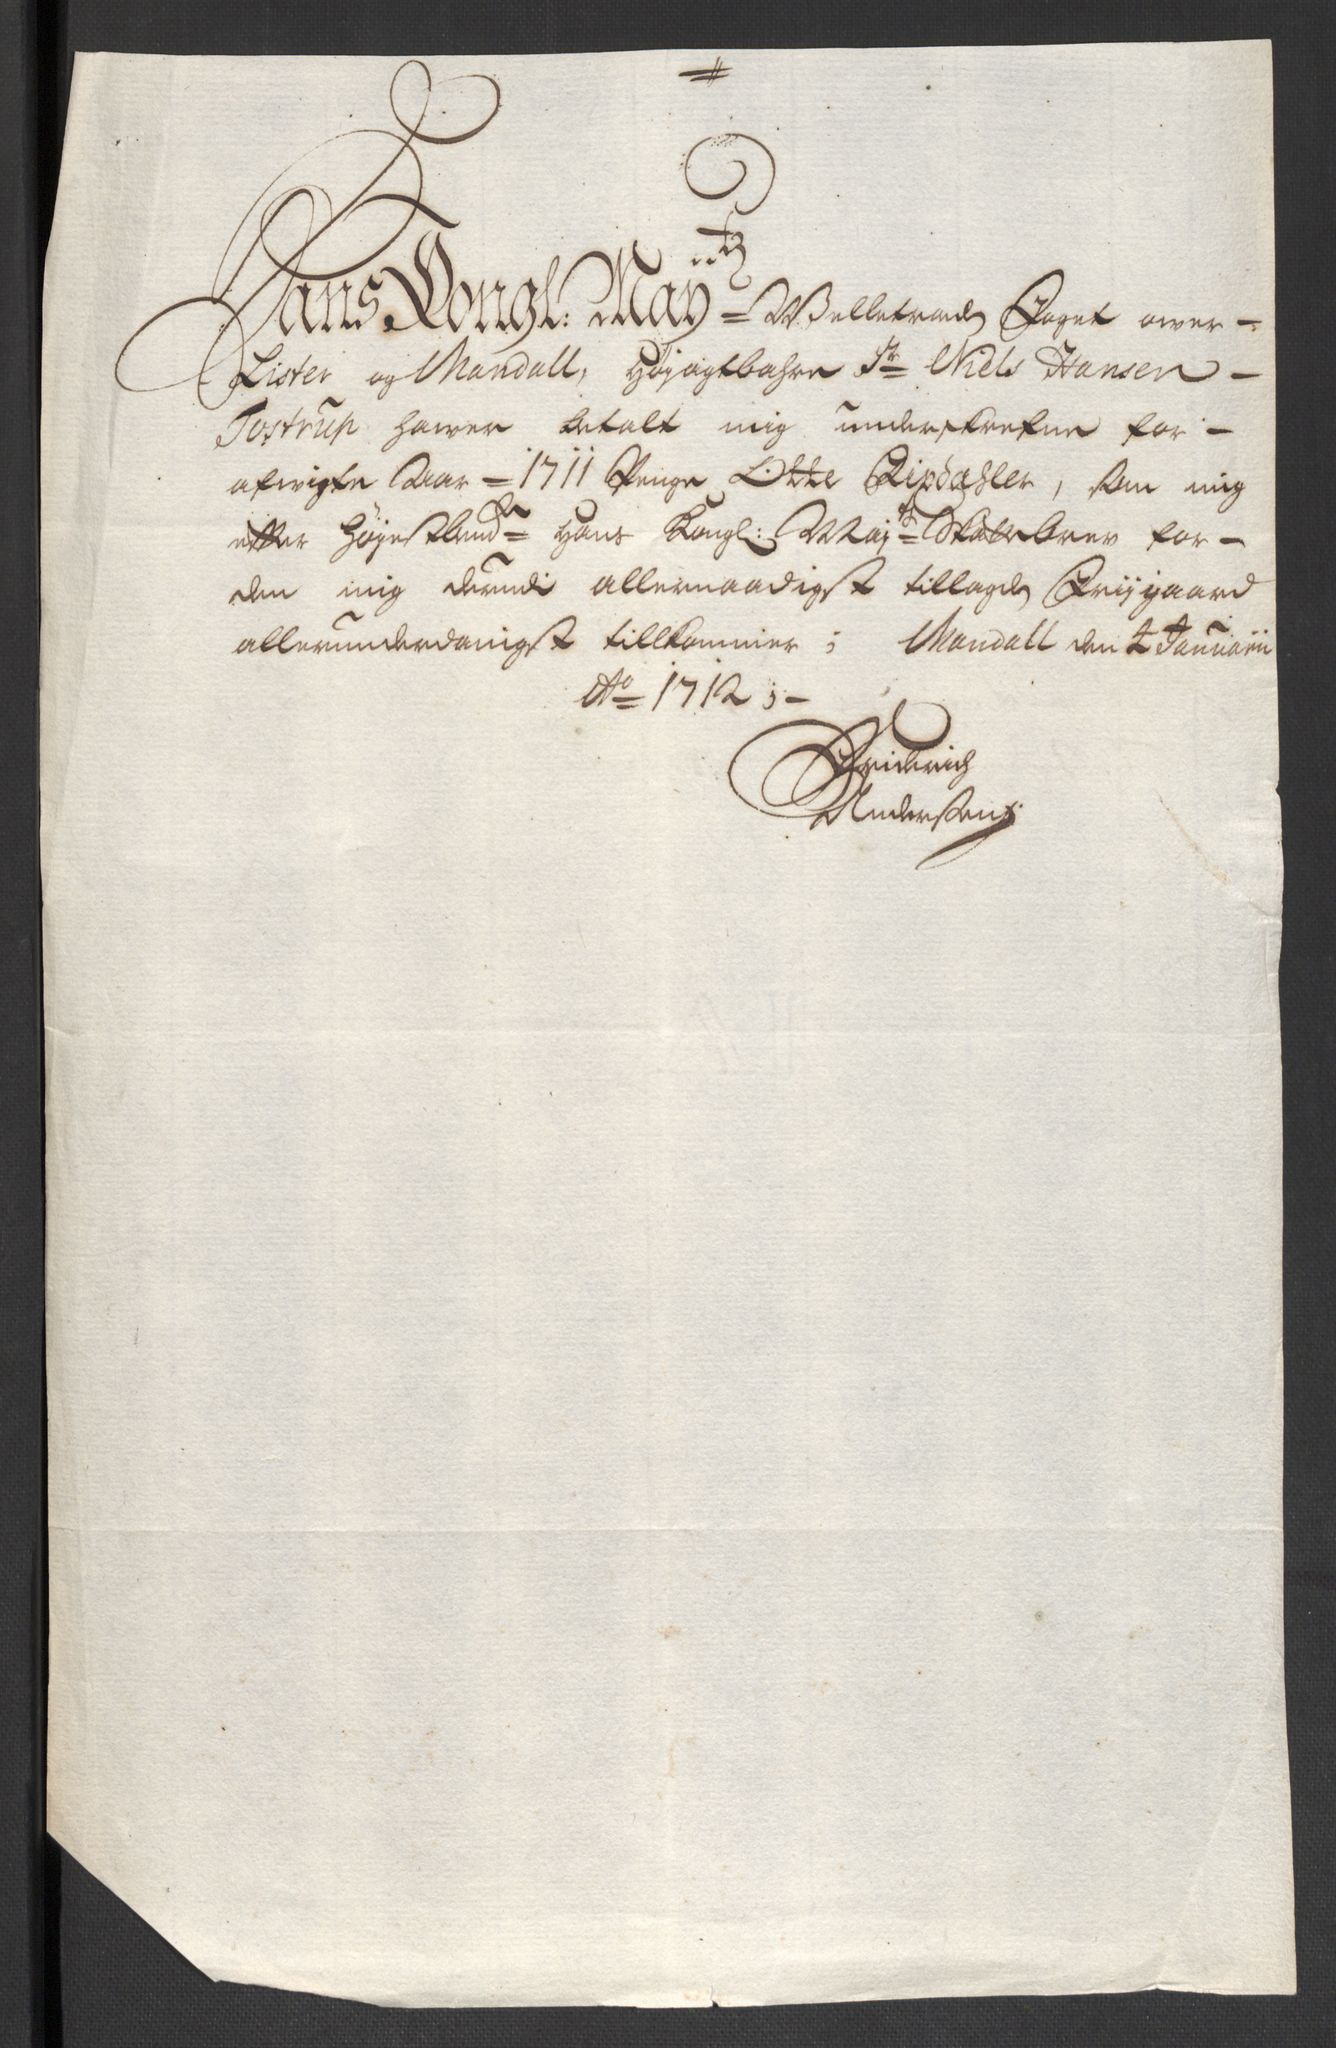 Hans Kongl: May.ttz Welbetrode Foget ower
Lister og Mandall, Højagtbahre Sr Niels Hansen
Tostrup hawer betalt mig underskrefne for
afwigte Aar 1711 Penge Otte Rixdahler, som mig
efter højestbemte Hans Kongl: Majts Skatte brev for
den mig derudi allernaadigst tillagde Frijgaard
allerunderdanigst tillkommer; Mandall den 2 Januarii
Ao 1712;
Friderich
Andersen